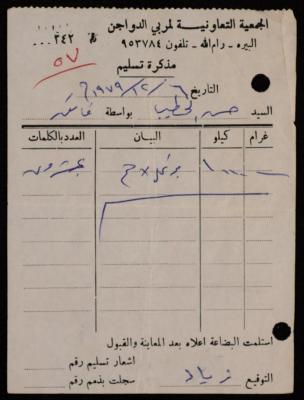 الجمعية التعاونية لمربي الدواجن
البيره – رام الله – تلفون ٩٥٣٧٨٤
٣٤٢
٥٧
مذكرة تسليم
التاريخ ٦/١٢/١٩٧٩ م
السيد حسن الخطيب بواسطة
غرام كيلو البيان العدد بالكلمات
عشرون
استلمت البضاعة اعلاه بعد المعاينة والقبول
اشعار تسليم رقم
سجلت بذمم رقم
التوقيع زياد